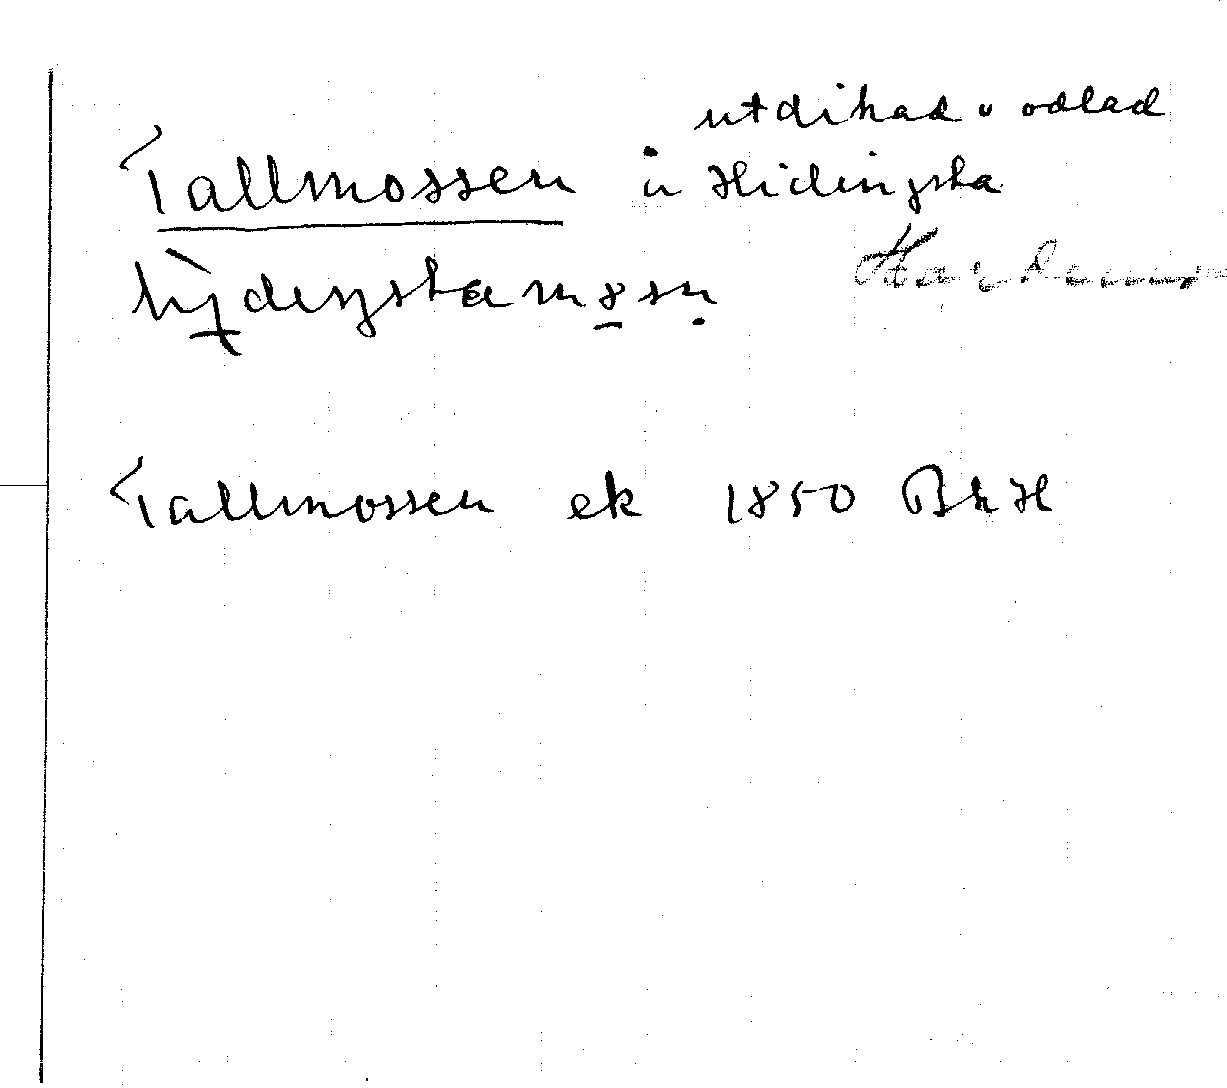 utdikad o odlad
Tallmossen å Hidingsta
hìdeŋstamosn̥
Tallmossen ek 1850 BhH